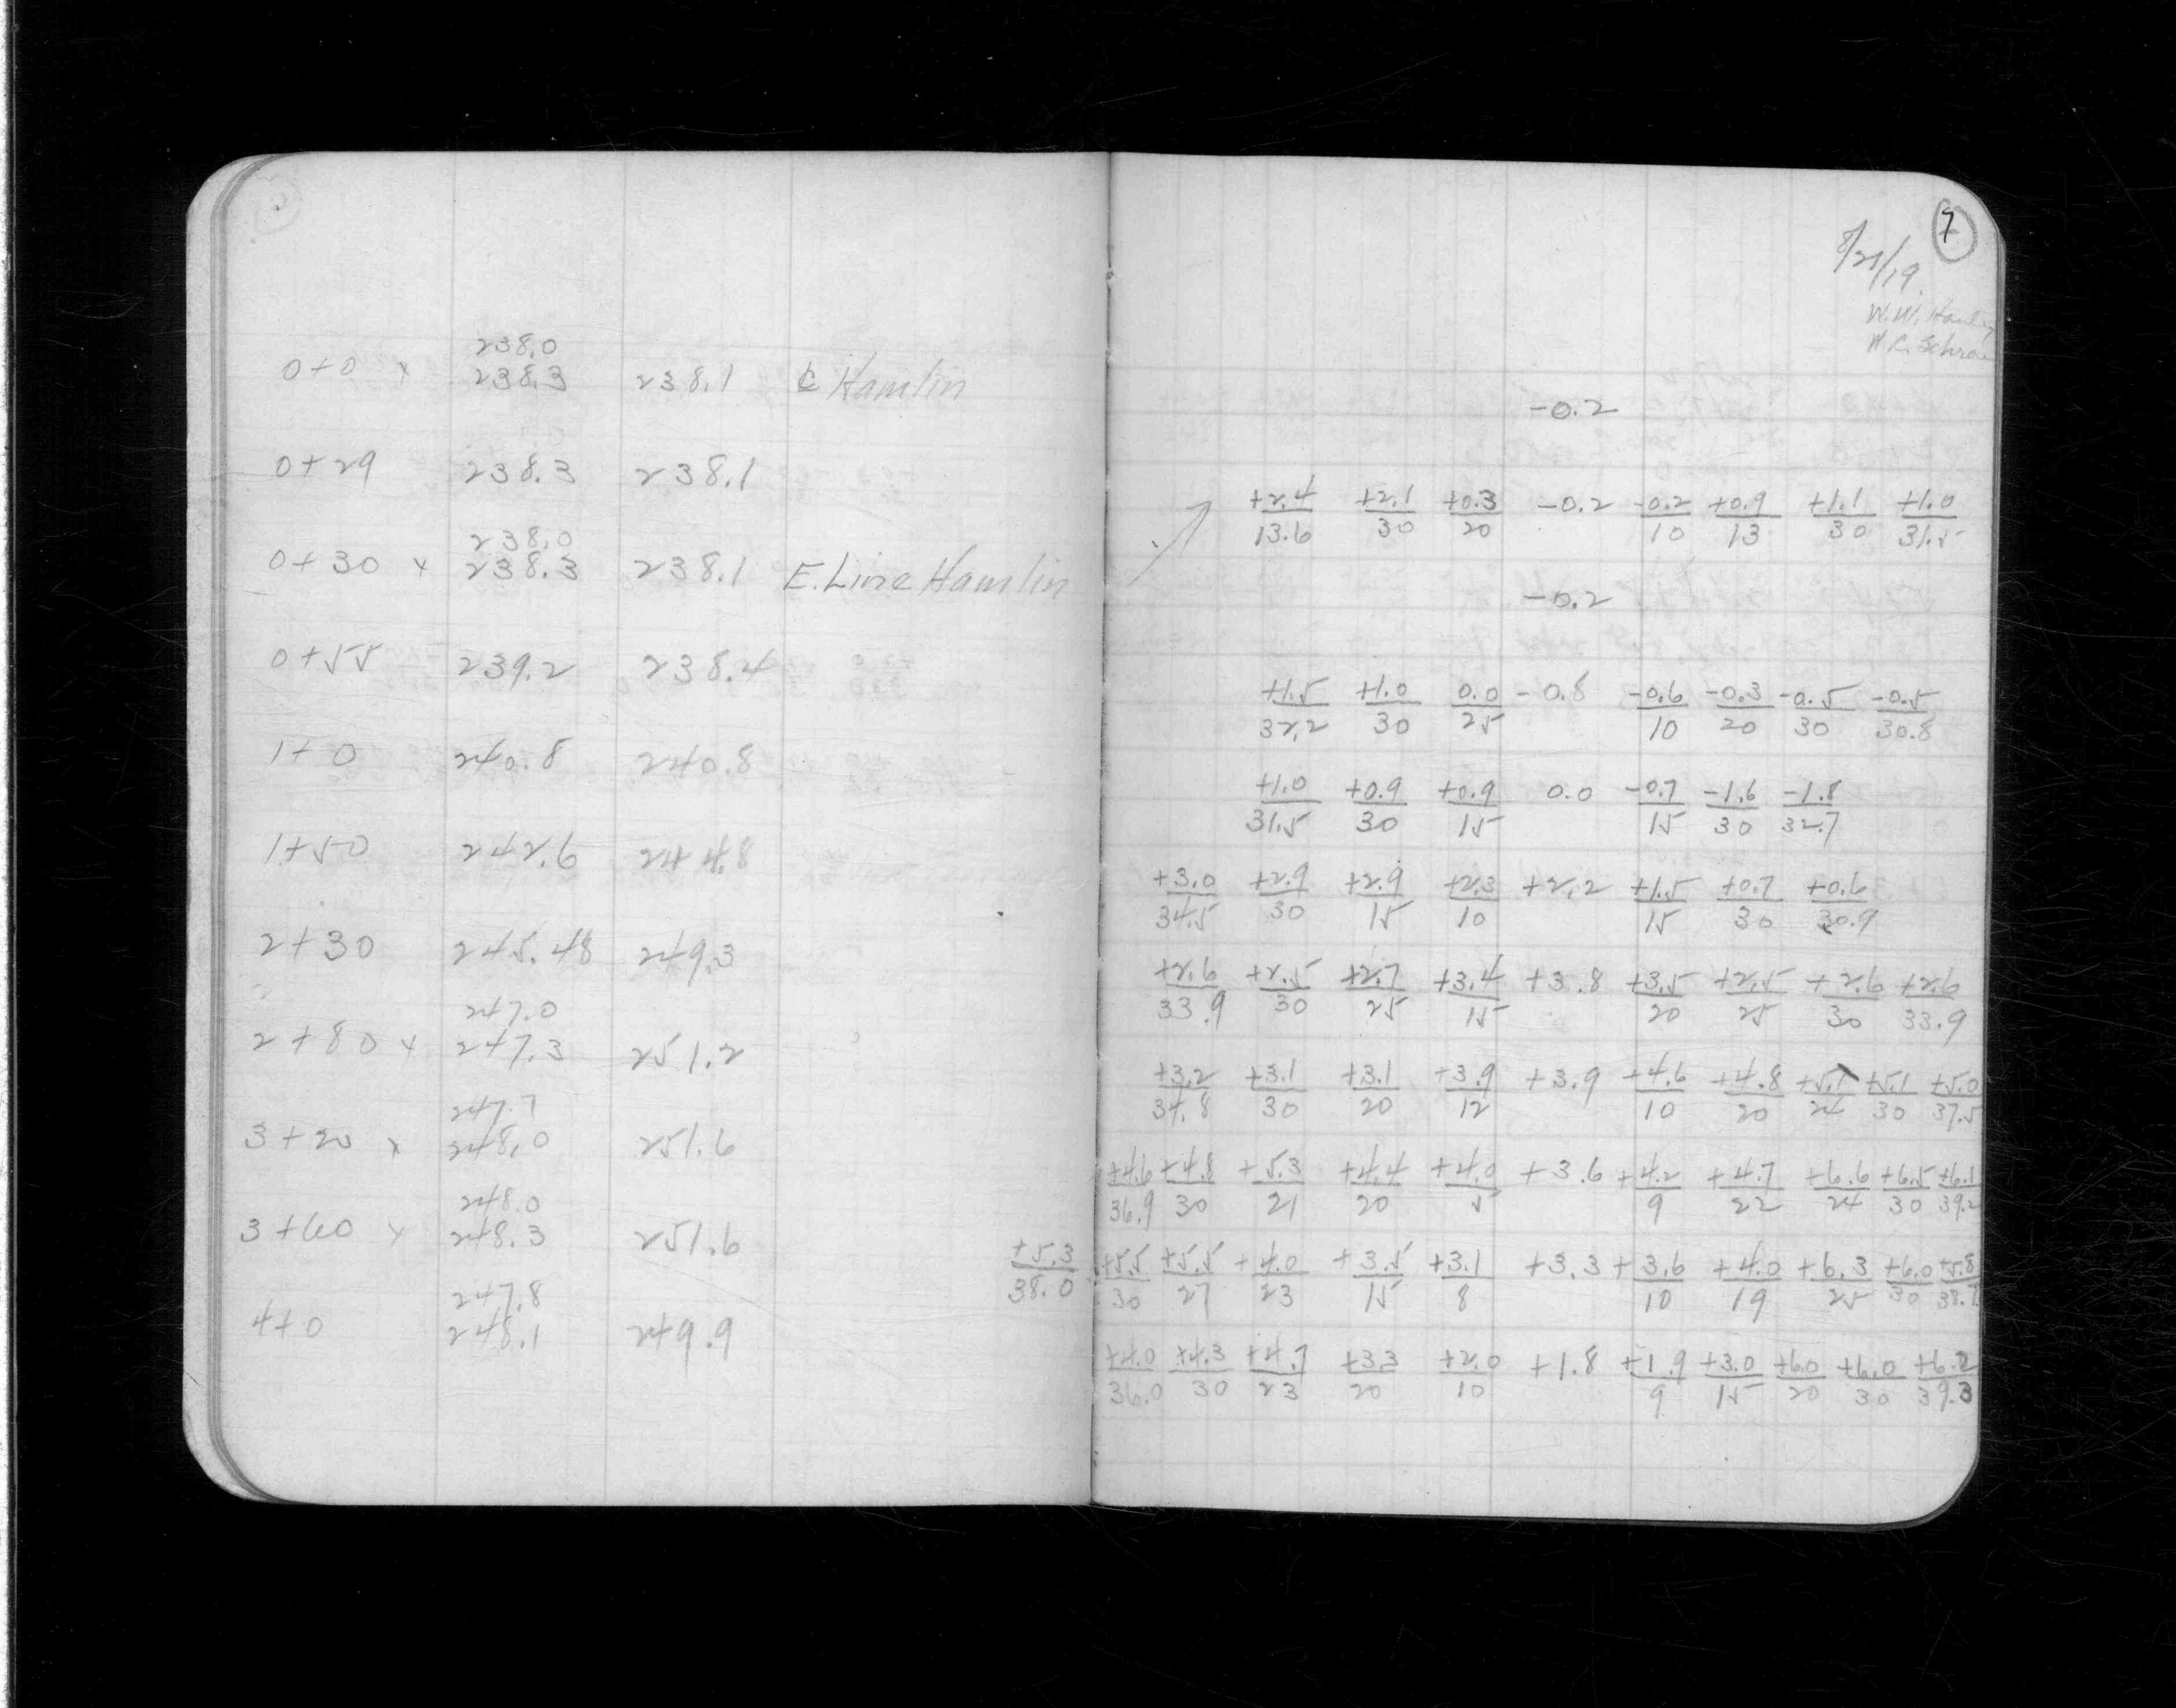 238.0
0+0 x 238.3 238.1 ȼ Hamlin
0+29 238.3 238.1
238.0
0+30 x 238.3 238.1 E. Line Hamlin
0+55 239.2 238.4
1+0 240.8 240.8
1+50 242.6 244.8
2+30 245.48 249.3
247.0
2+80 x 247.3 251.2
247.7
3+20 x 248.0 251.6
248.0
3+60 x 248.3 251.6
247.8
4+0 248.1 249.9
7
8/21/19.
W.W.
W.C.
-0.2
+2.4 +2.1 +0.3 -0.2 -0.2 +0.9 +1.1 +1.0
13.6 30 20 10 13 30 31.5
-0.2
+1.5 +1.0 0.0 -0.8 -0.6 -0.3 -0.5 -0.5
32.2 30 25 10 20 30 30.8
+1.0 +0.9 +0.9 0.0 -0.7 -1.6 -1.8
31.5 30 15 15 30 32.7
+3.0 +2.9 +2.9 +2.3 +2.2 +1.5 +0.7 +0.6
34.5 30 15 10 15 30 30.9
+2.6 +2.5 +2.7 +3.4 +3.8 +3.5 +2.5 +2.6 +2.6
33.9 30 25 15 20 25 30 33.9
+3.2 +3.1 +3.1 +3.9 +3.9 +4.6 +4.8 +5.1 +5.1 +5.0
34.8 30 20 12 10 20 24 30 37.5
+4.6 +4.8 +5.3 +4.4 +4.0 +3.6 +4.2 +4.7 +6.6 +6.5 +6.1
36.9 30 21 20 5 9 22 24 30 39.2
+5.3 +5.5 +5.5 +4.0 +3.5 +3.1 +3.3 +3.6 +4.0 +6.3 +6.0 +5.8
38.0 30 27 23 15 8 10 19 25 30 38.7
+4.0 +4.3 +4.7 +3.3 +2.0 +1.8 +1.9 +3.0 +6.0 +6.0 +6.2
36.0 30 23 20 10 9 15 20 30 39.3